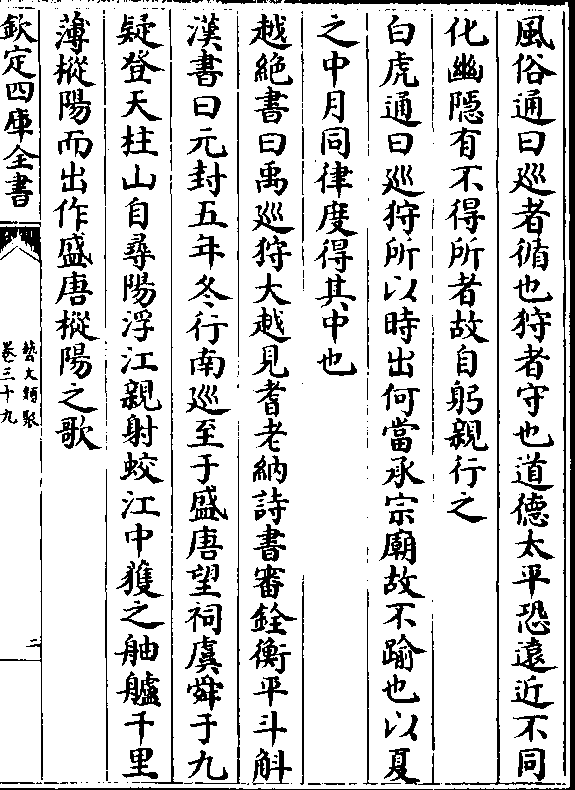 風俗通曰巡者循也狩者守也道德太平恐遠近不同
化幽隱有不得所者故自躬親行之
白虎通曰巡狩所以時出何當承宗廟故不踰也以夏
之中月同律度得其中也
越絶書曰禹巡狩大越見耆老納詩書審銓衡平斗斛
漢書曰元封五年冬行南巡至于盛唐望祠虞舜于九
疑登天柱山自尋陽浮江親射蛟江中獲之舳艫千里
薄樅陽而出作盛唐樅陽之歌
欽定四庫全書
藝文類聚
卷三十九
二